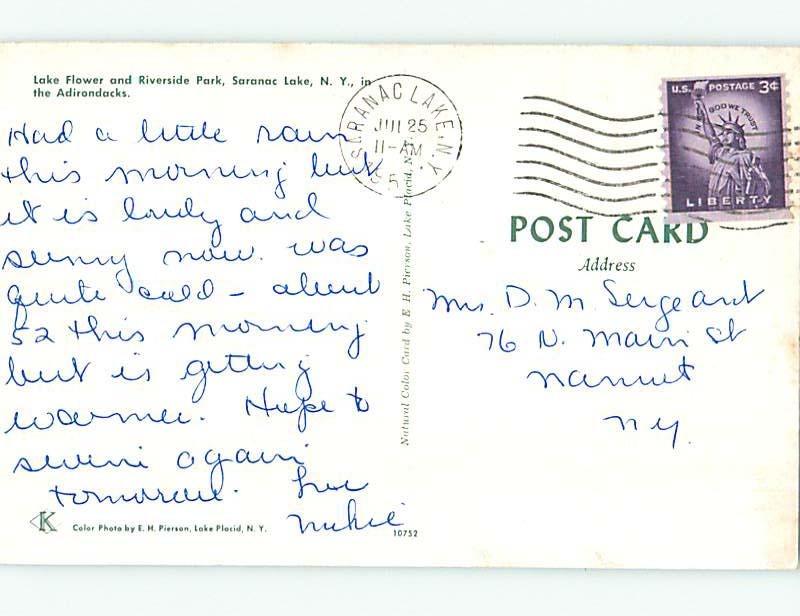 Lake Flower and Riverside Park, Saranac Lake, N. Y., in
the Adirondacks.
Had a little rain
this morning but
it is lovely and
sunny now. was
quite cold – about
52 this morning
but is getting
warmer. Hope to
swim again
tomorrow. Love
SARANAC LAKE, N.Y.
25
11-AM
Natural Color Card by E. H. Pierson, Lake Placid, N.
U.S. POSTAGE 3¢
IN GOD WE TRUST
LIBERTY
POST CARD
Address
Mrs. D. M. Sergeant
76 N. Main St
Nanuet
N Y.
K
Color Photo by E. H. Pierson, Lake Placid, N. Y.
10752